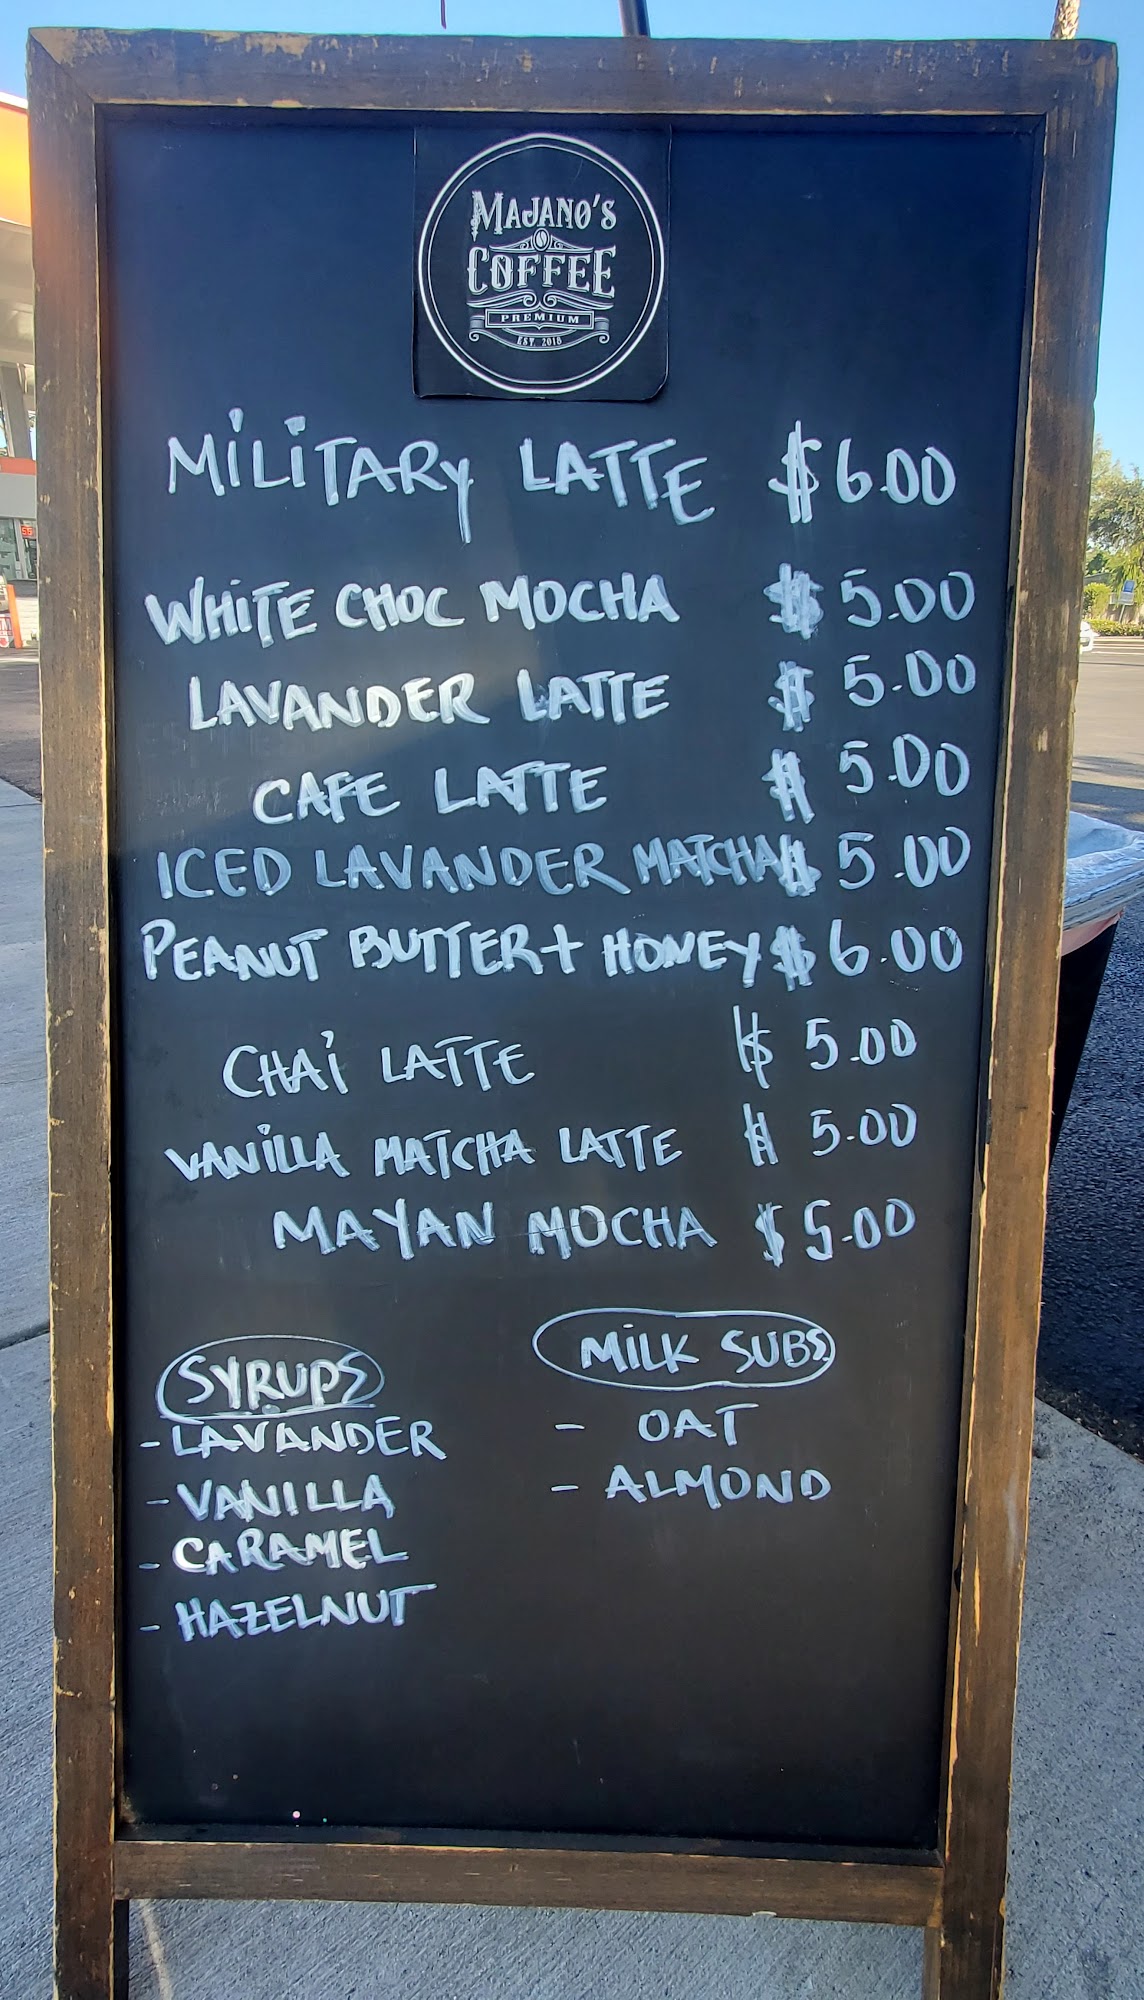 MAJANO'S
COFFEE
PREMIUM
EST. 2018
MiLiTARy LATTE $6.00
WHiTE CHOC MOCHA $5.00
LAVANDER LATTE $5.00
CAFE LATTE $5.00
ICED LAVANDER MATCHA $5.00
PEANUT BUTTER + HONEY $6.00
CHAi LATTE $5.00
VANiLLA MATCHA LATTE $5.00
MAYAN MOCHA $5.00
SYRUPS
- LAVANDER
- VANILLA
- CARAMEL
- HAZELNUT
MiLK SUBS
- OAT
- ALMOND